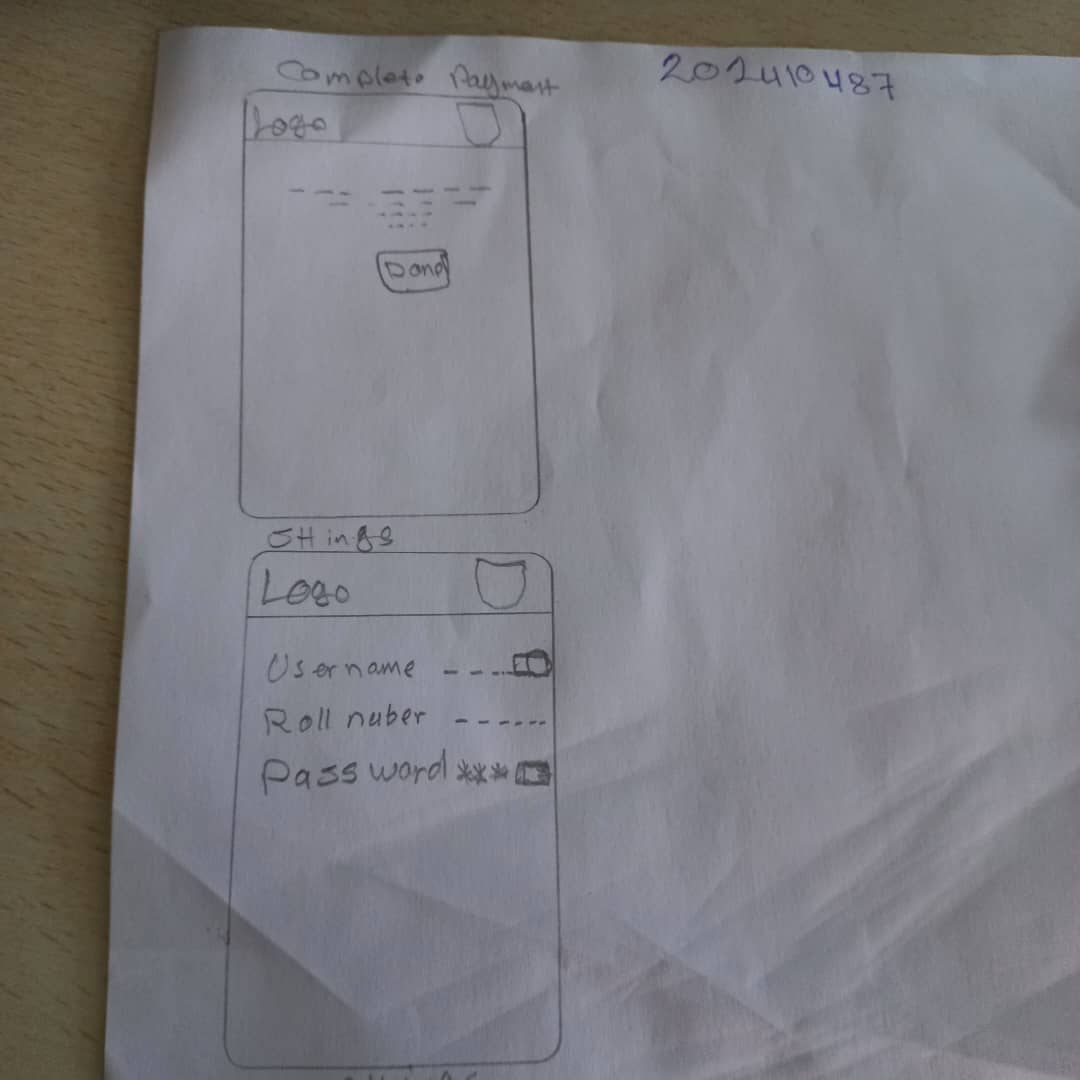 Complete Payment
202410487
Logo
Done
Logo
Username
Roll nuber
Password ***